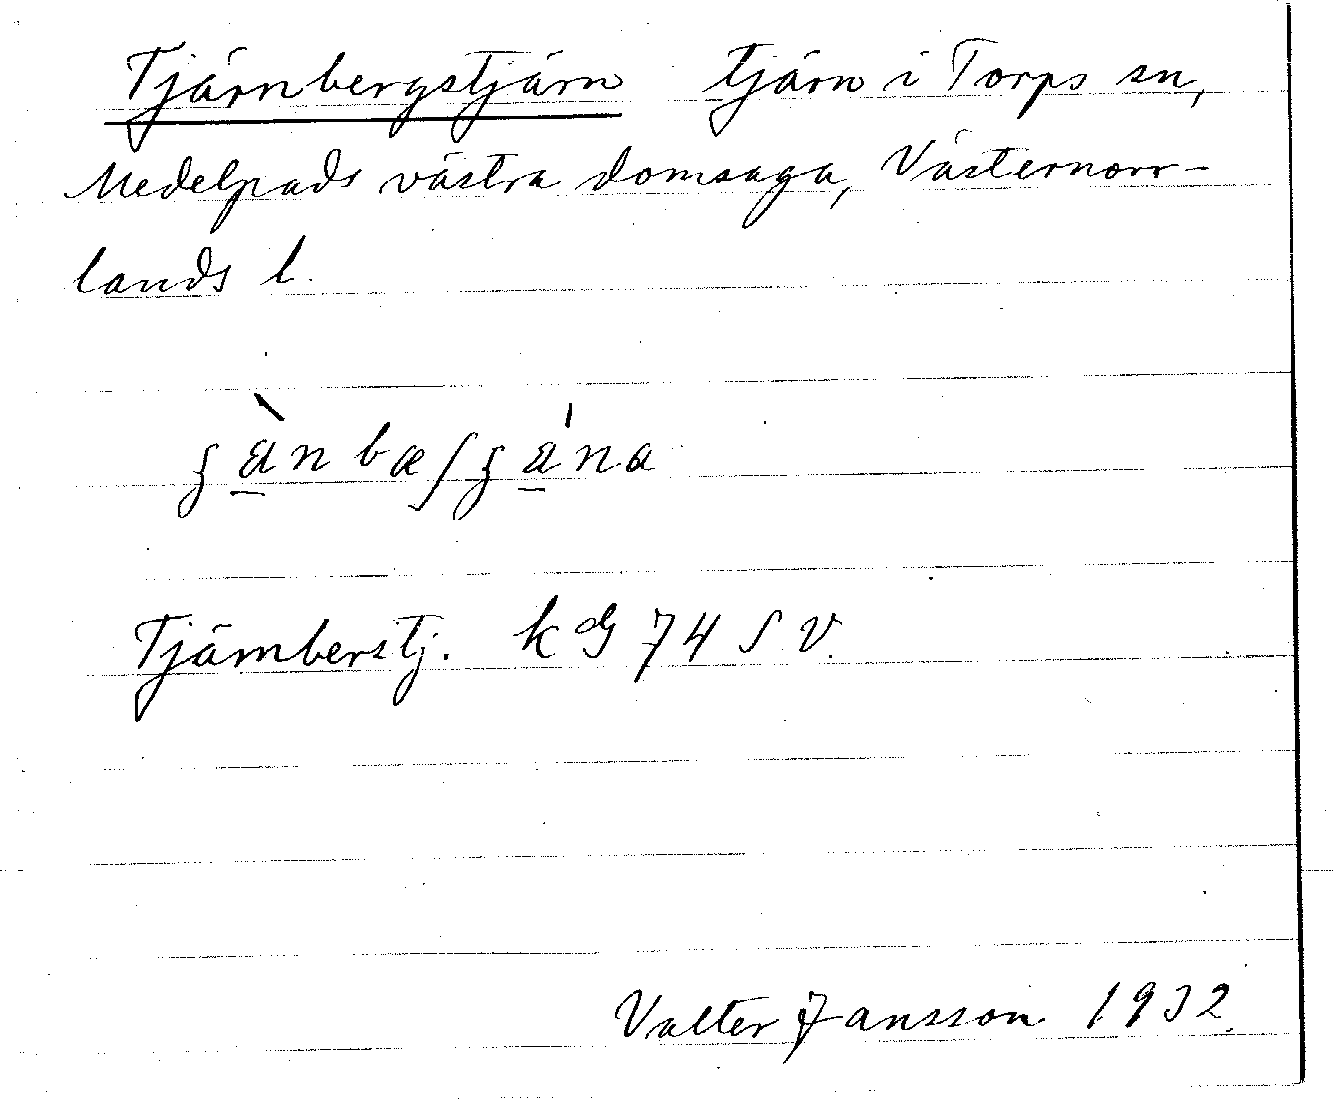 Tjärnbergstjärn tjärn i Torps sn,
Medelpads västra domsaga, Västernorr-
lands l.
Tjärnberstj. k dG 74 SV.
Valter Jansson 1932.